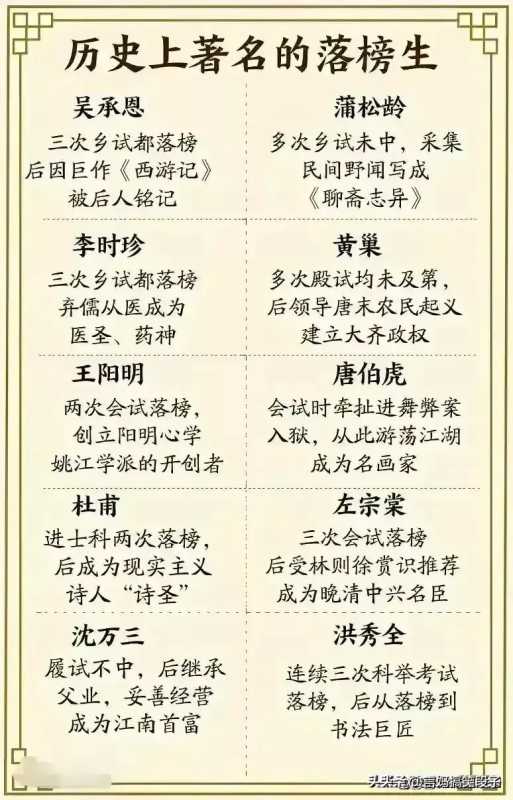 历史上著名的落榜生
吴承恩
三次乡试都落榜
后因巨作《西游记》
被后人铭记
蒲松龄
多次乡试未中，采集
民间野闻写成
《聊斋志异》
李时珍
三次乡试都落榜
弃儒从医成为
医圣、药神
黄巢
多次殿试均未及第，
后领导唐末农民起义
建立大齐政权
王阳明
两次会试落榜，
创立阳明心学
姚江学派的开创者
唐伯虎
会试时牵扯进舞弊案
入狱，从此游荡江湖
成为名画家
杜甫
进士科两次落榜，
后成为现实主义
诗人“诗圣”
左宗棠
三次会试落榜
后受林则徐赏识推荐
成为晚清中兴名臣
沈万三
履试不中，后继承
父业，妥善经营
成为江南首富
洪秀全
连续三次科举考试
落榜，后从落榜到
书法巨匠
头条@喜妈搞笑段子